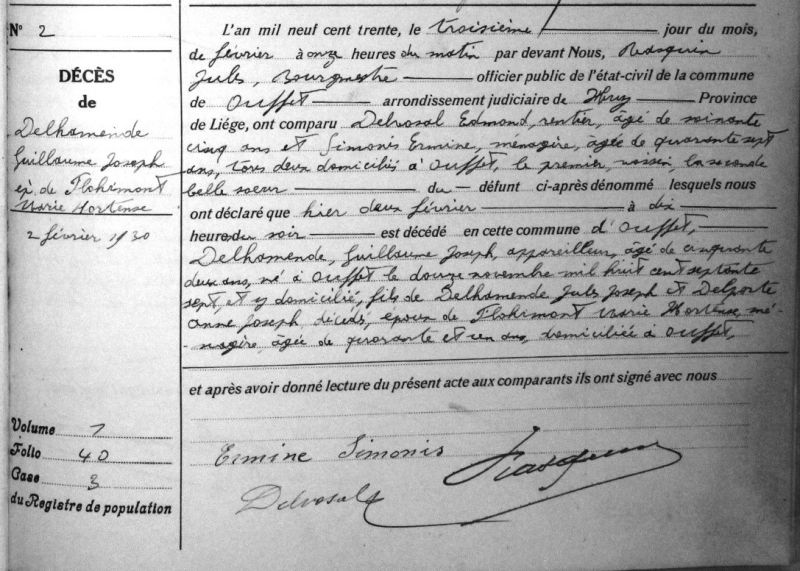 N° 2
DÉCÈS
de
Delhamende
Guillaume Joseph
ép. de Flohimont
Marie Hortense
2 février 1930
Volume 7
Folio 40
Case 3
du Registre de population
L'an mil neuf cent trente, le troisième jour du mois,
de février à onze heures du matin par devant Nous, Rasquin
Jules, Bourgmestre officier public de l'état-civil de la commune
de Ouffet arrondissement judiciaire de Huy Province
de Liége, ont comparu Delvosal Edmond, rentier, âgé de soixante
cinq ans et Simonis Ermine, ménagère, âgée de quarante sept
ans, tous deux domiciliés à Ouffet, le premier, voisin, la seconde
belle soeur du défunt ci-après dénommé lesquels nous
ont déclaré que hier deux février à dix
heures du soir est décédé en cette commune d'Ouffet,
Delhamende, Guillaume Joseph, appareilleur, âgé de cinquante
deux ans, né à Ouffet le douze novembre mil huit cent septante
sept, et y domicilié, fils de Delhamende Jules Joseph et Delporte
Anne Joseph, décédés, époux de Flohimont Marie Hortense, mé-
nagère, âgée de quarante et un ans, domiciliée à Ouffet,
et après avoir donné lecture du présent acte aux comparants ils ont signé avec nous
Ermine Simonis
Rasquin
Delvosal